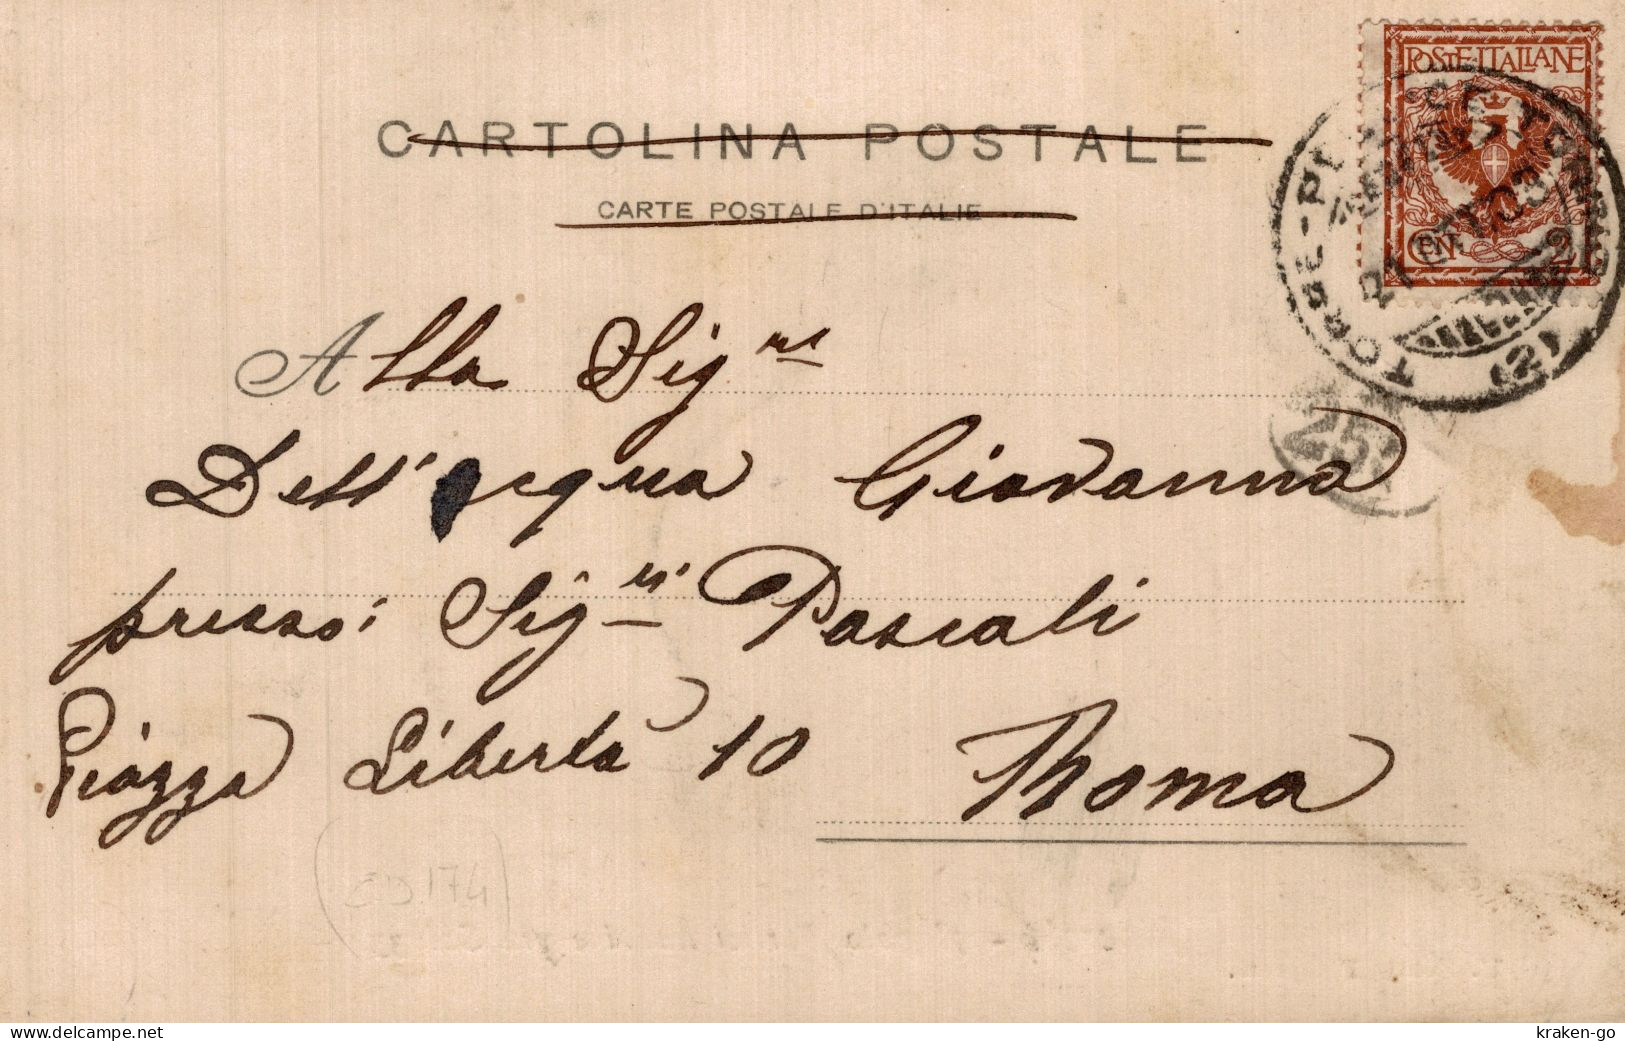 POSTE·ITALIANE
CEN. 2
CARTOLINA POSTALE
CARTE POSTALE D'ITALIE
(2)
25
Alla Sig.ra
Dell'acqua Giovanna
presso: Sig.ri Pascali
Piazza Libertà 10 Roma
174
www.delcampe.net
kraken-go